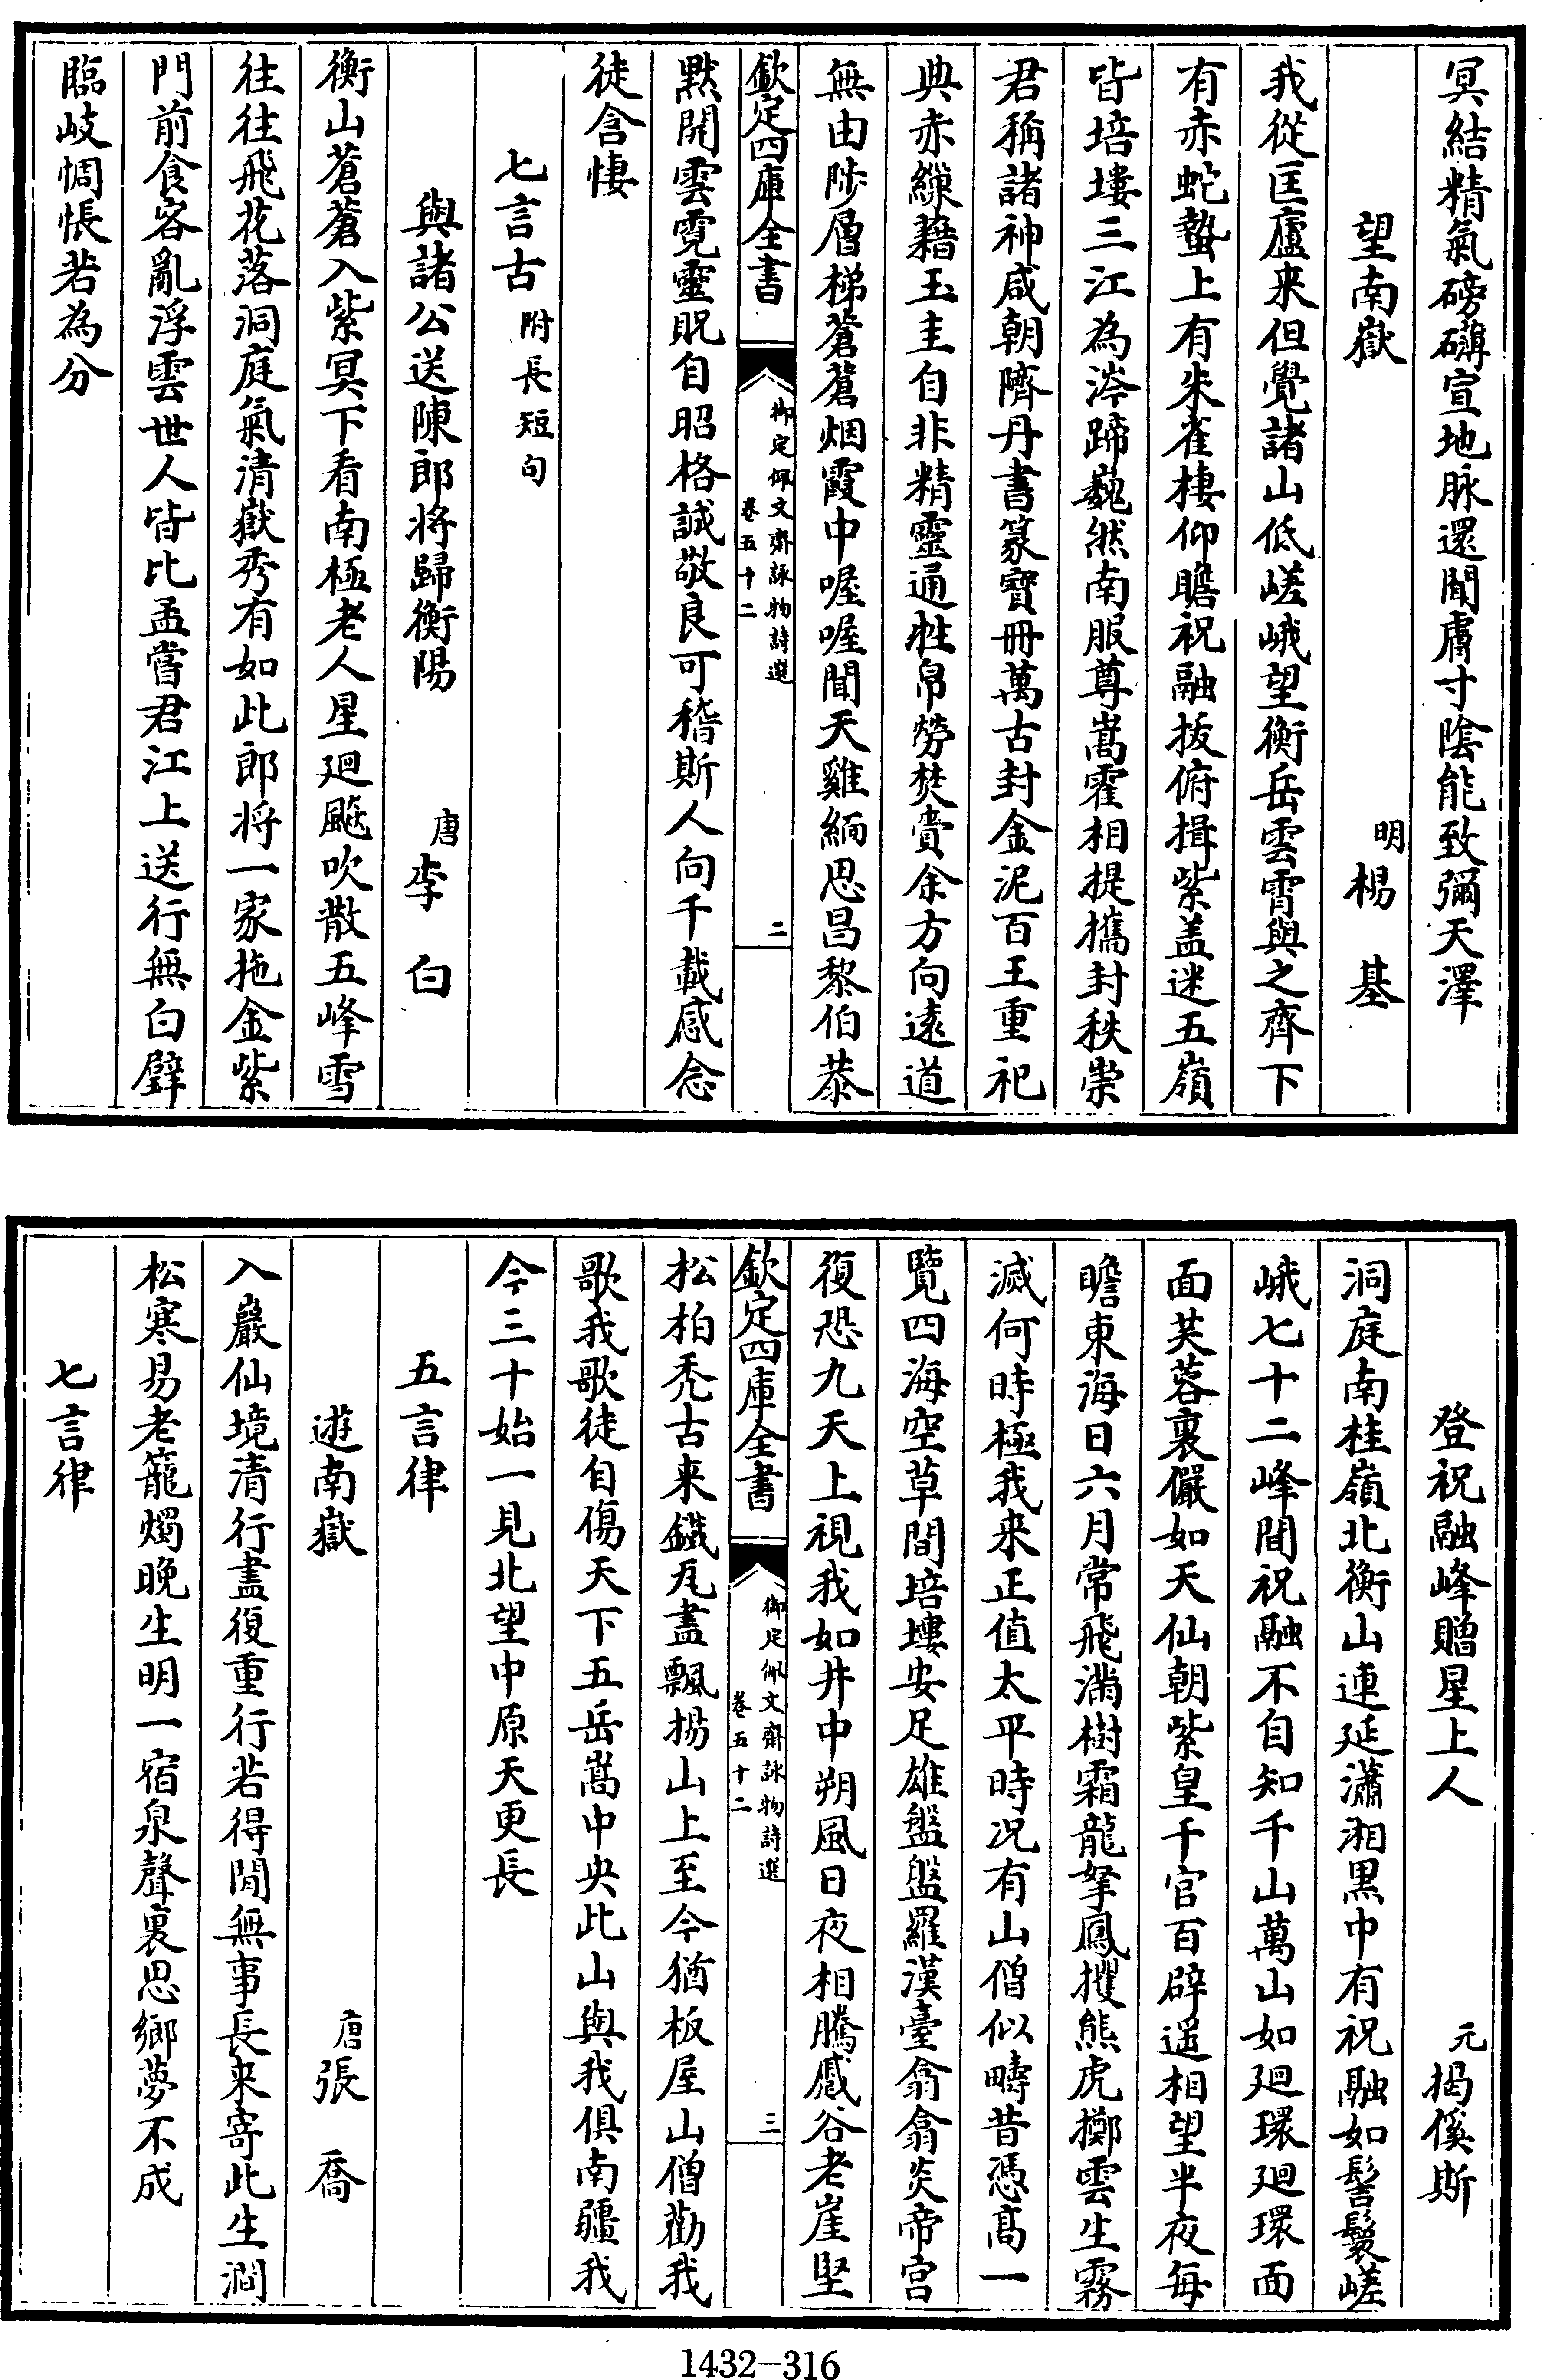 冥結精氣磅礴宣地脉還聞膚寸陰能致彌天澤
望南嶽 明 楊基
我從匡廬来但覺諸山低嵯峨望衡岳雲霄與之齊下
有赤蛇蟄上有朱雀棲仰瞻祝融拔俯揖紫盖迷五嶺
皆培塿三江為涔蹄巍然南服尊嵩霍相提攜封秩崇
君稱諸神咸朝隮丹書篆寶冊萬古封金泥百王重祀
典赤繅藉玉圭自非精靈通牲帛勞焚賫余方向遠道
無由陟層梯蒼蒼烟霞中喔喔聞天雞緬思昌黎伯恭
欽定四庫全書 御定佩文齋詠物詩選 卷五十二 二
默開雲霓靈貺自昭格誠敬良可稽斯人向千載感念
徒含悽
七言古 附長短句
與諸公送陳郎将歸衡陽 唐 李白
衡山蒼蒼入紫冥下看南極老人星廻飈吹散五峰雪
往往飛花落洞庭氣清嶽秀有如此郎将一家拖金紫
門前食客亂浮雲世人皆比孟嘗君江上送行無白璧
臨岐惆悵若為分
登祝融峰贈星上人 元 揭傒斯
洞庭南桂嶺北衡山連延瀟湘黒中有祝融如髻鬟嵯
峨七十二峰間祝融不自知千山萬山如廻環廻環面
面芙蓉裏儼如天仙朝紫皇千官百辟遥相望半夜每
瞻東海日六月常飛滿樹霜龍拏鳳攫熊虎擲雲生霧
滅何時極我来正值太平時况有山僧似疇昔憑髙一
覽四海空草間培塿安足雄盤盤羅漢臺翕翕炎帝宫
復恐九天上視我如井中朔風日夜相騰蹙谷老崖堅
欽定四庫全書 御定佩文齋詠物詩選 卷五十二 三
松柏秃古来鐵瓦盡飄揚山上至今猶板屋山僧勸我
歌我歌徒自傷天下五岳嵩中央此山與我俱南疆我
今三十始一見北望中原天更長
五言律
遊南嶽 唐 張喬
入巖仙境清行盡復重行若得閒無事長来寄此生澗
松寒易老籠燭晚生明一宿泉聲裏思鄉夢不成
七言律
1432-316